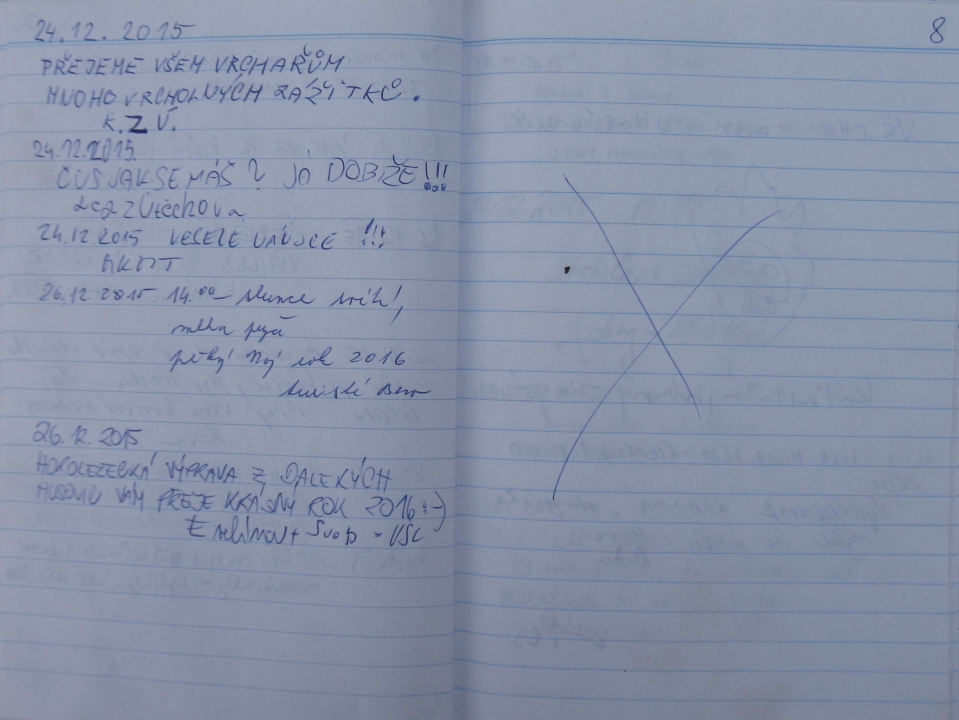 24.12.2015
PŘEJEME VŠEM VRCHAŘŮM
MNOHO VRCHOLNÝCH ZÁŽITKŮ.
K. Z Ú.
24.12.2015.
ČUS JAK SE MÁŠ? JÁ DOBŘE!!!
z Útěchova
24.12 2015 VESELÉ VÁNOCE !!!
26.12. 2015 14.00 – slunce svítí,
mlha pryč
pěkný Nový rok 2016
26.12.2015
HOROLEZECKÁ VÝPRAVA Z DALEKÝCH
HUSOVIC VÁM PŘEJE KRÁSNÝ ROK 2016 :-)
8